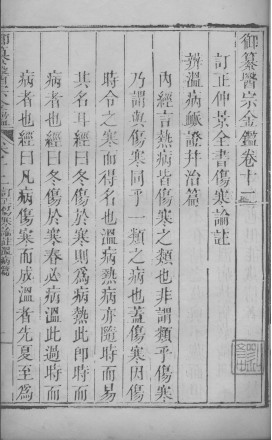 御纂醫宗金鑑卷十二
訂正仲景全書傷寒論註
辨溫病脈證并治篇
內經言熱病皆傷寒之類也非謂類乎傷寒
乃謂與傷寒同乎一類之病也蓋傷寒因傷
時令之寒而得名也溫病熱病亦隨時而易
其名耳經曰冬傷於寒則爲病熱此卽時而
病者也經曰冬傷於寒春必病溫此過時而
病者也經曰凡病傷寒而成溫者先夏至爲